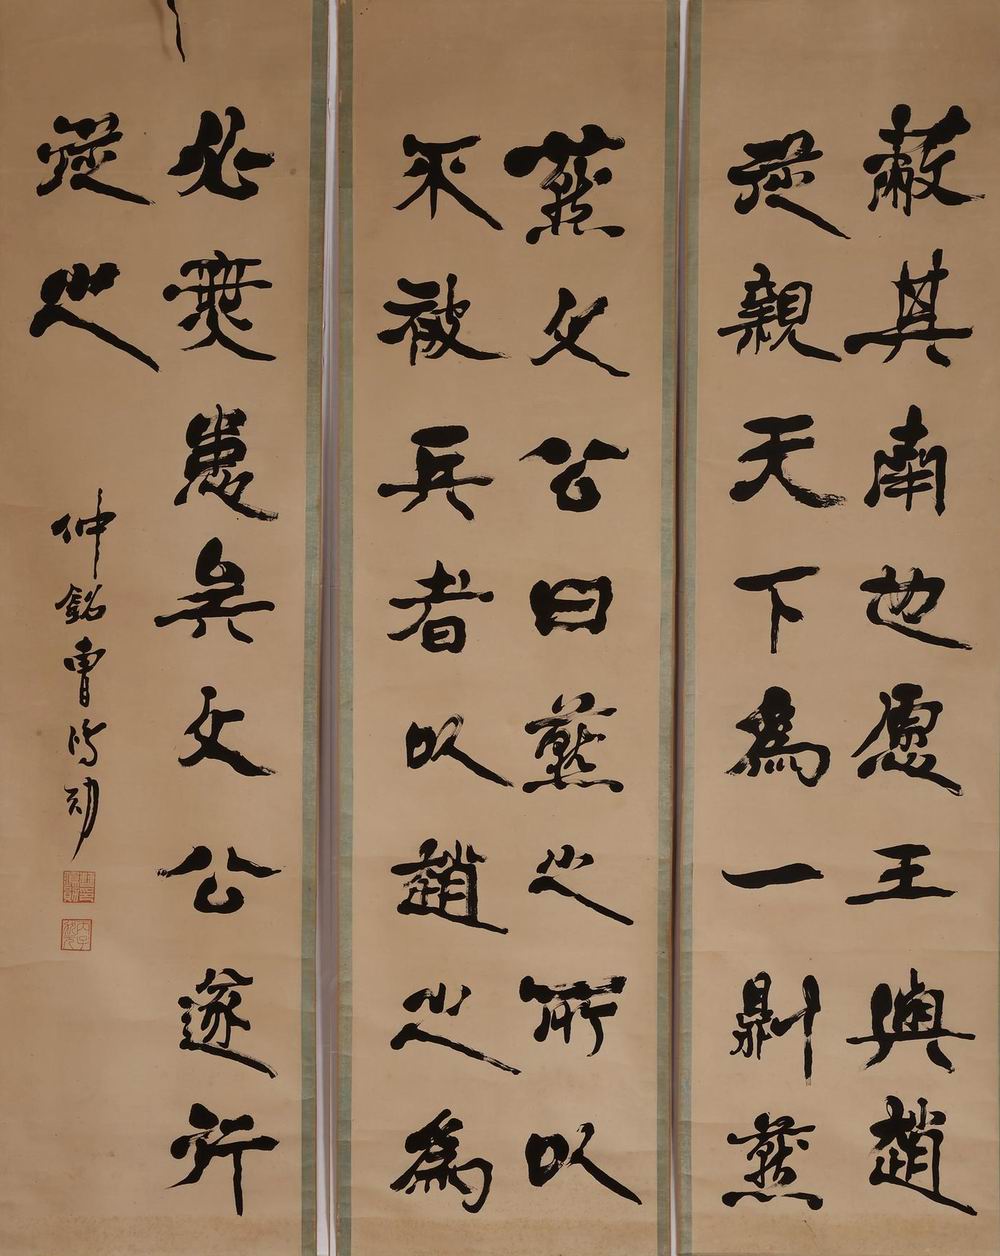 蔽其南也愿王與趙
從親天下為一則燕
燕文公曰燕之所以
不被兵者以趙之為
必無患矣文公遂行
從之
仲銘曹鴻勛